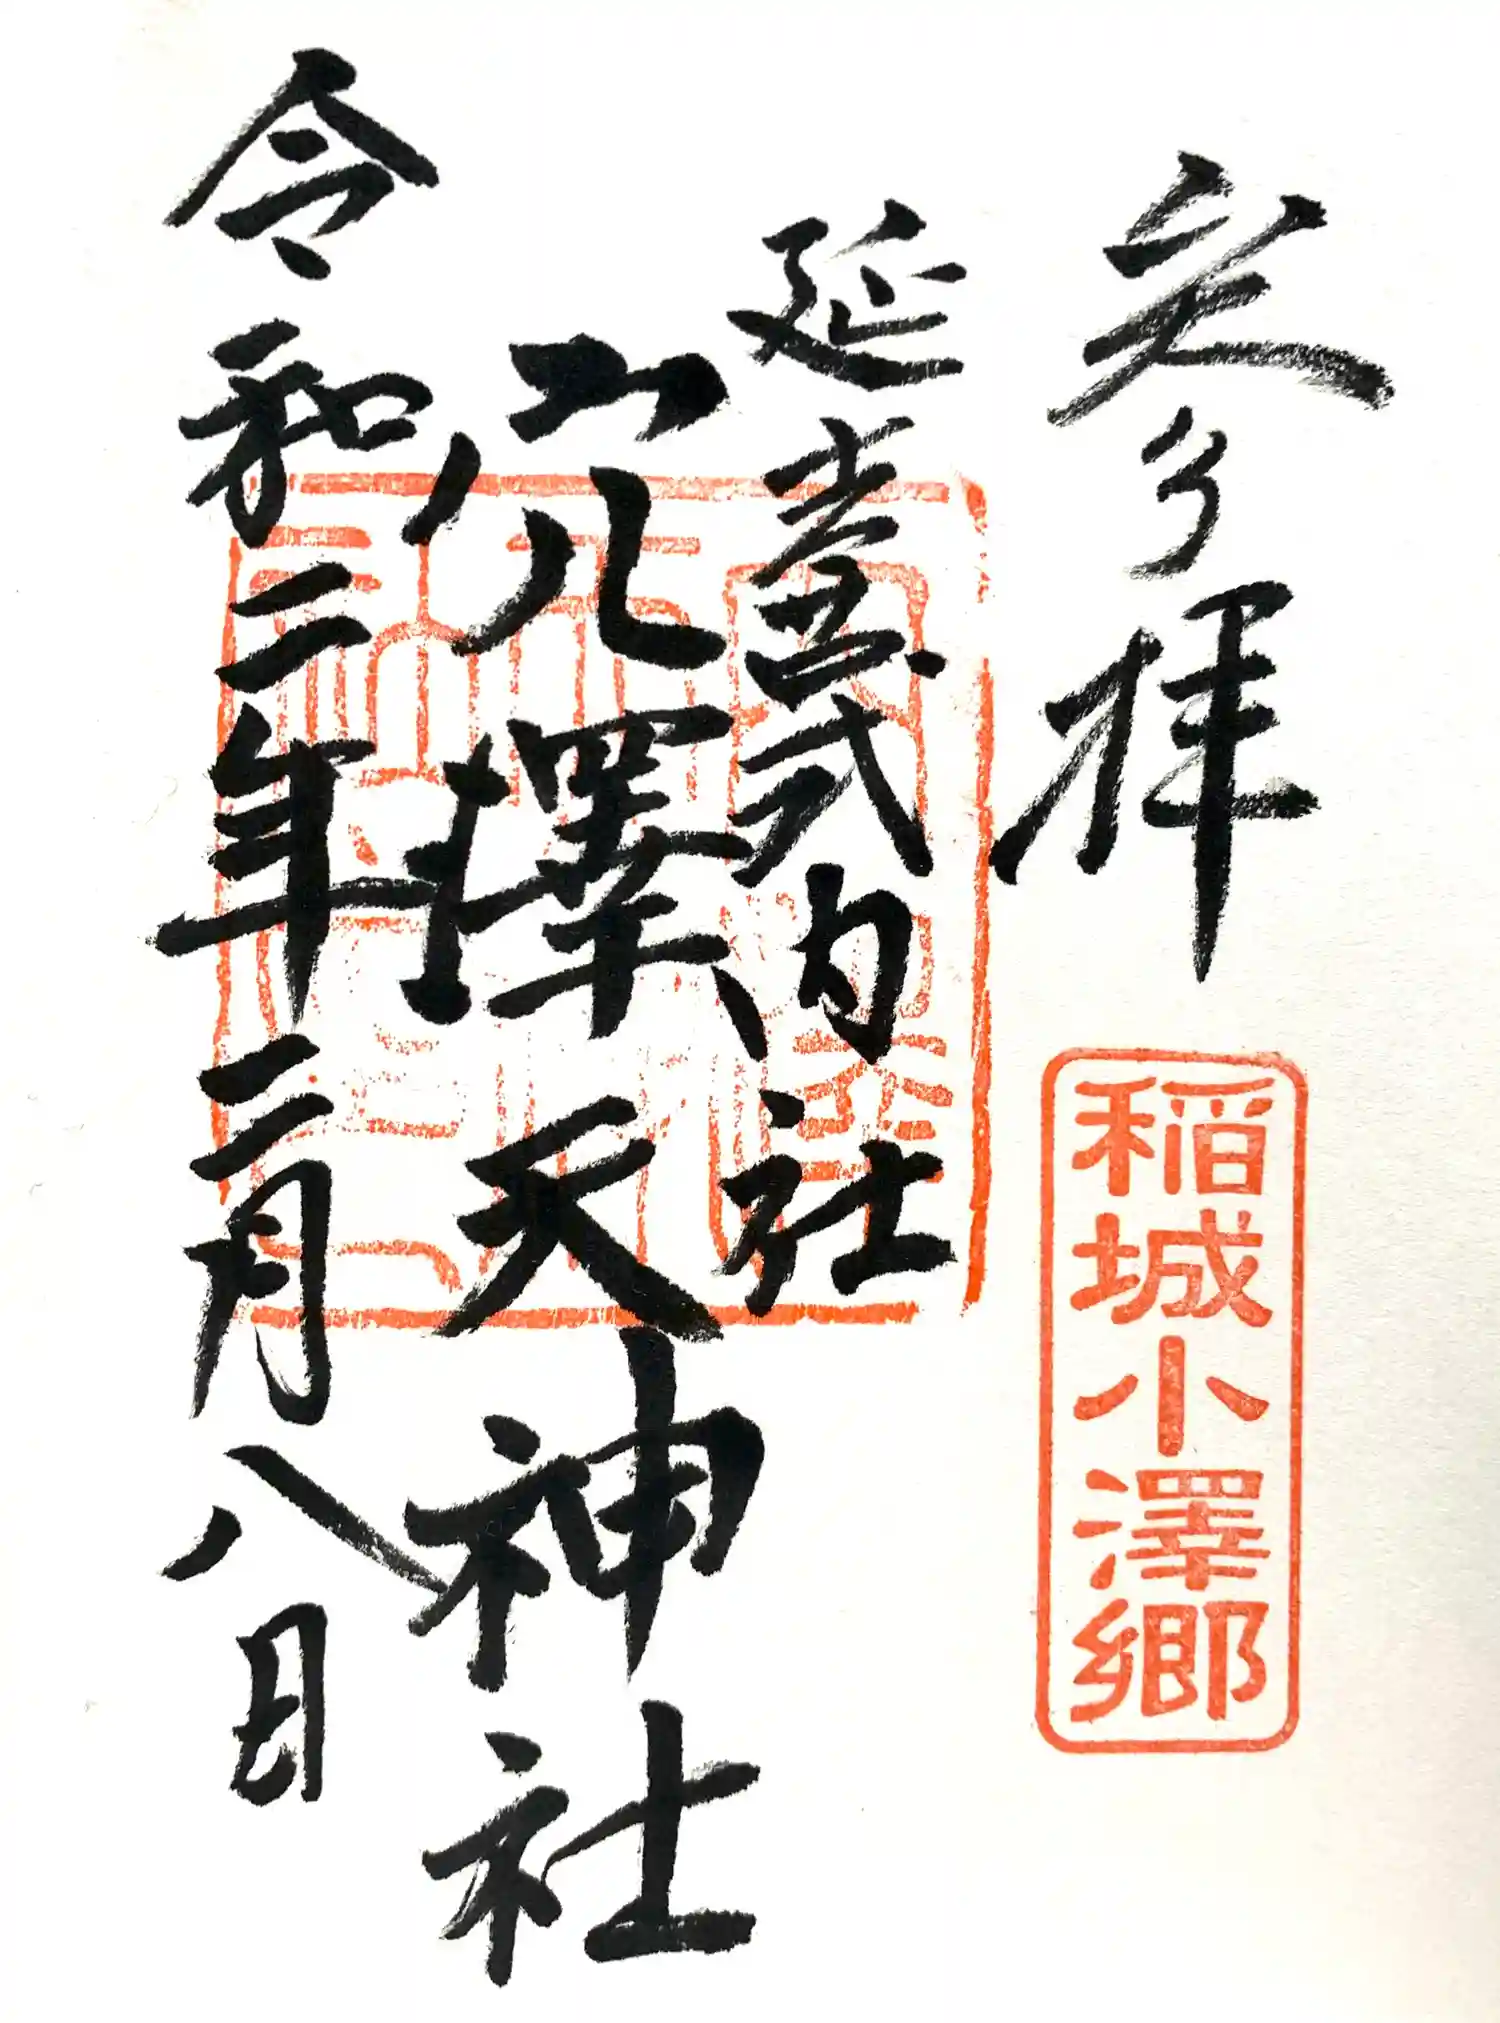 参拝
稲城小澤郷
延喜式内社
穴澤天神社
令和二年三月八日